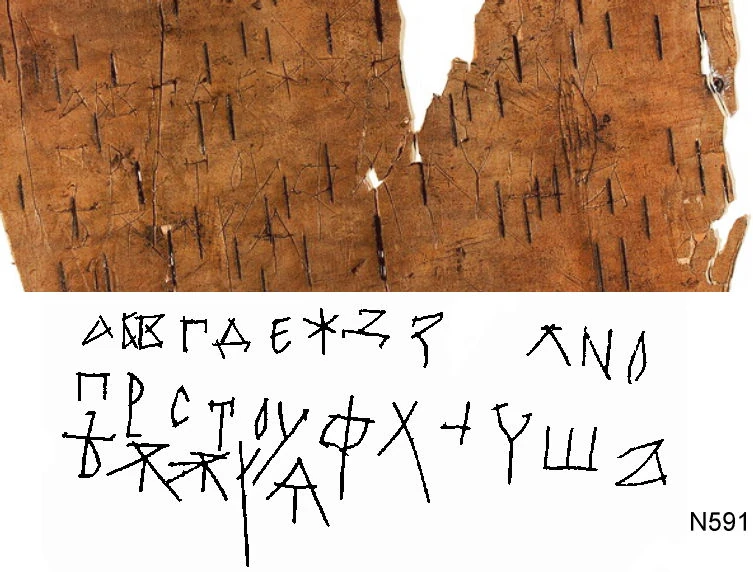 АБВГДЕЖЗꙀ ЛNО
ПРСТОУФХ+ЧШ
ѢѪѪѴѦ
N591